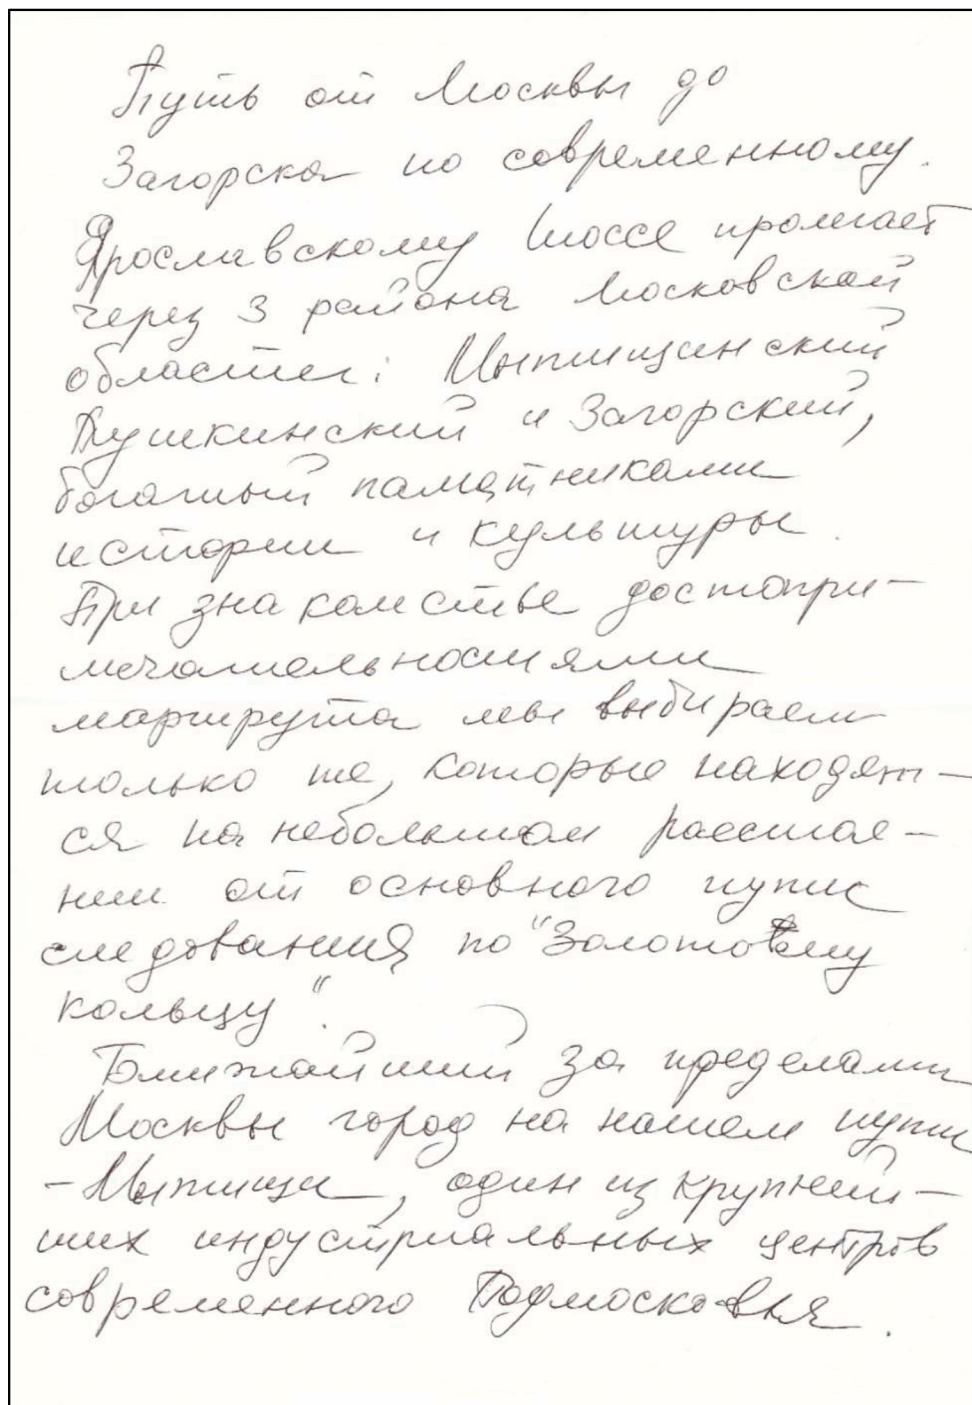 Путь от Москвы до
Загорска по современному.
Ярославскому Шоссе пролегает
через 3 района Московской
области: Мытищинский
Пушкинский и Загорский,
богатый памятниками
истории и культуры.
При знакомстве достопри-
мечательностями
маршрута мы выбираем
только те, которые находят-
ся на небольшом расстоя-
нии от основного пути
следования по "Золотому
кольцу".
Ближайший за пределами
Москвы город на нашем пути
- Мытищи, один из крупней-
ших индустриальных центров
современного Подмосковья.